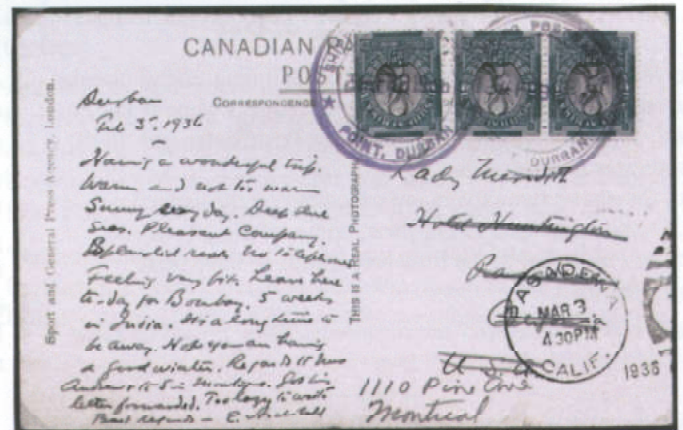 CANADIAN PA
POST
CORRESPONDENCE
Sport and General Press Agency, London.
THIS IS A REAL PHOTOGRAPH
POINT, DURBAN
Durban
Feb 3rd 1936
Having a wonderful trip.
Warm and not too warm
Sunny every day. Deep blue
seas. Pleasant Company.
Splendid rest. No telephones
Feeling very fit. Leave here
to-day for Bombay. 5 weeks
in India. It is a long time to
be away. Hope you are having
a good winter. Regards
letter forwarded. Too lazy to write
Best regards
Lady Meredith
Hotel Huntington
Pasadena
California
U.S.A.
1110 Pine Ave
Montreal
PASADENA
MAR 3
4 30 PM
CALIF.
1936